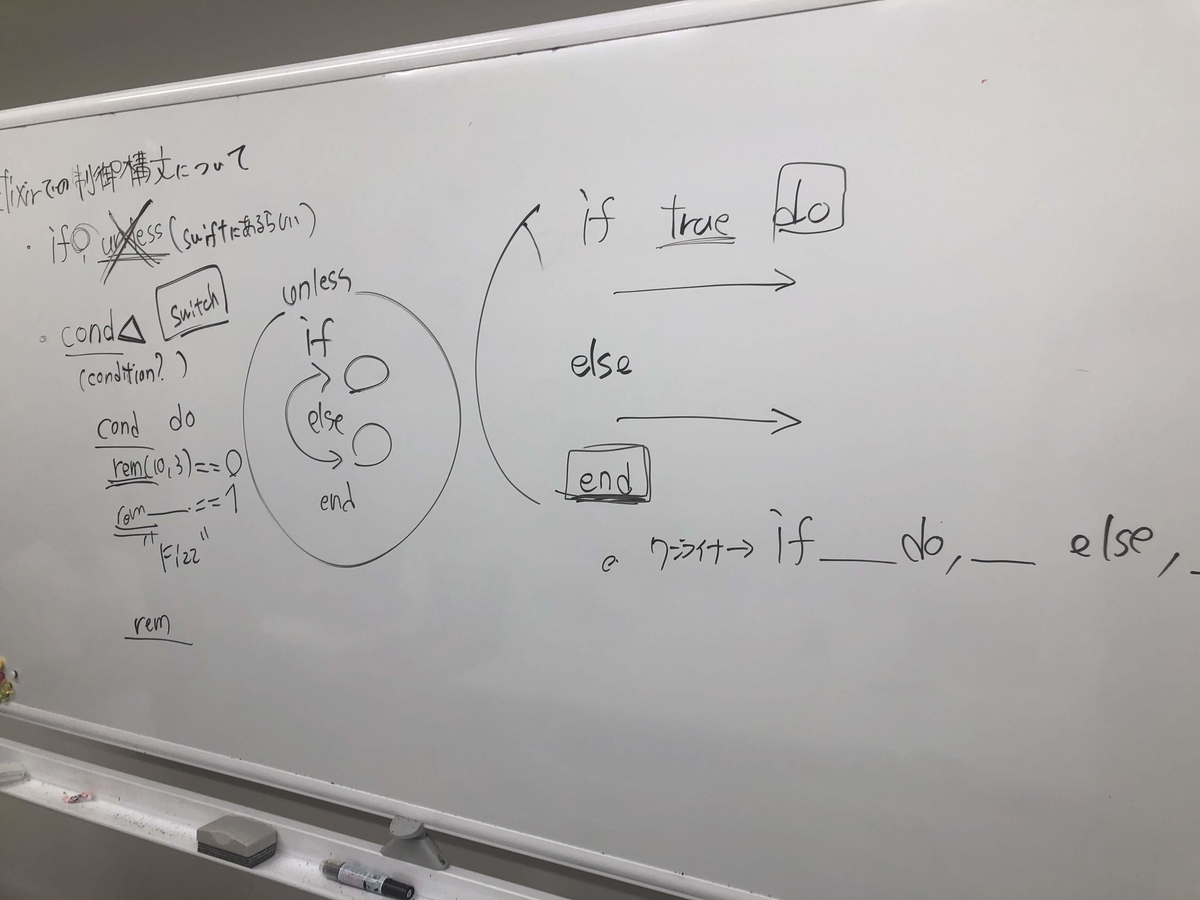 Elixirでの制御構文について
・if○, unless (swiftにあるらしい)
・cond△ switch
(condition?)
cond do
rem(10,3)==0
rem ==1
"Fizz"
rem
unless
if
else
end
if true do
else
end
ワンライナー→ if __ do, __ else,